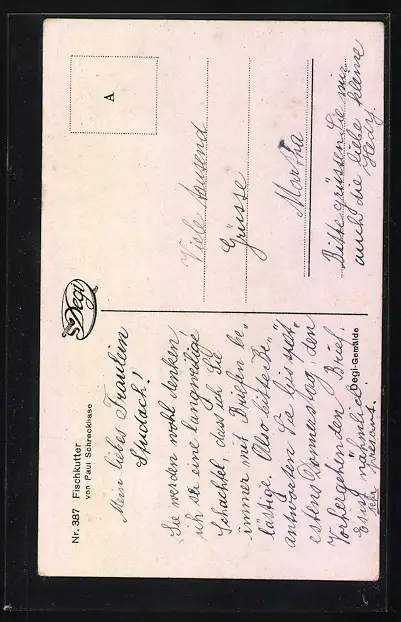 Nr. 387 Fischkutter
von Paul Schreckhase
Mein liebes Fräulein
Studach!
Sie werden wohl denken,
ich sei eine langweilige
Schachtel, dass ich Sie
immer mit Briefen be-
lästige. Also bitte Be-
antworten Sie bis spät-
estens Donnerstag den
Vorhergehenden Brief.
Es ist nämlich
sehr pressant.
Degi
Degi-Gemälde
A
Viele tausend
Grüsse
Martha
Bitte grüssen Sie mir
auch die liebe kleine
Hedy